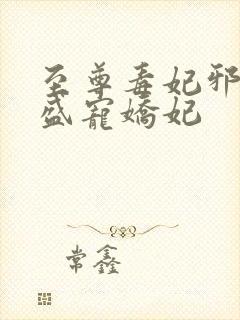 至尊毒妃邪
盛寵嬌妃
常鑫